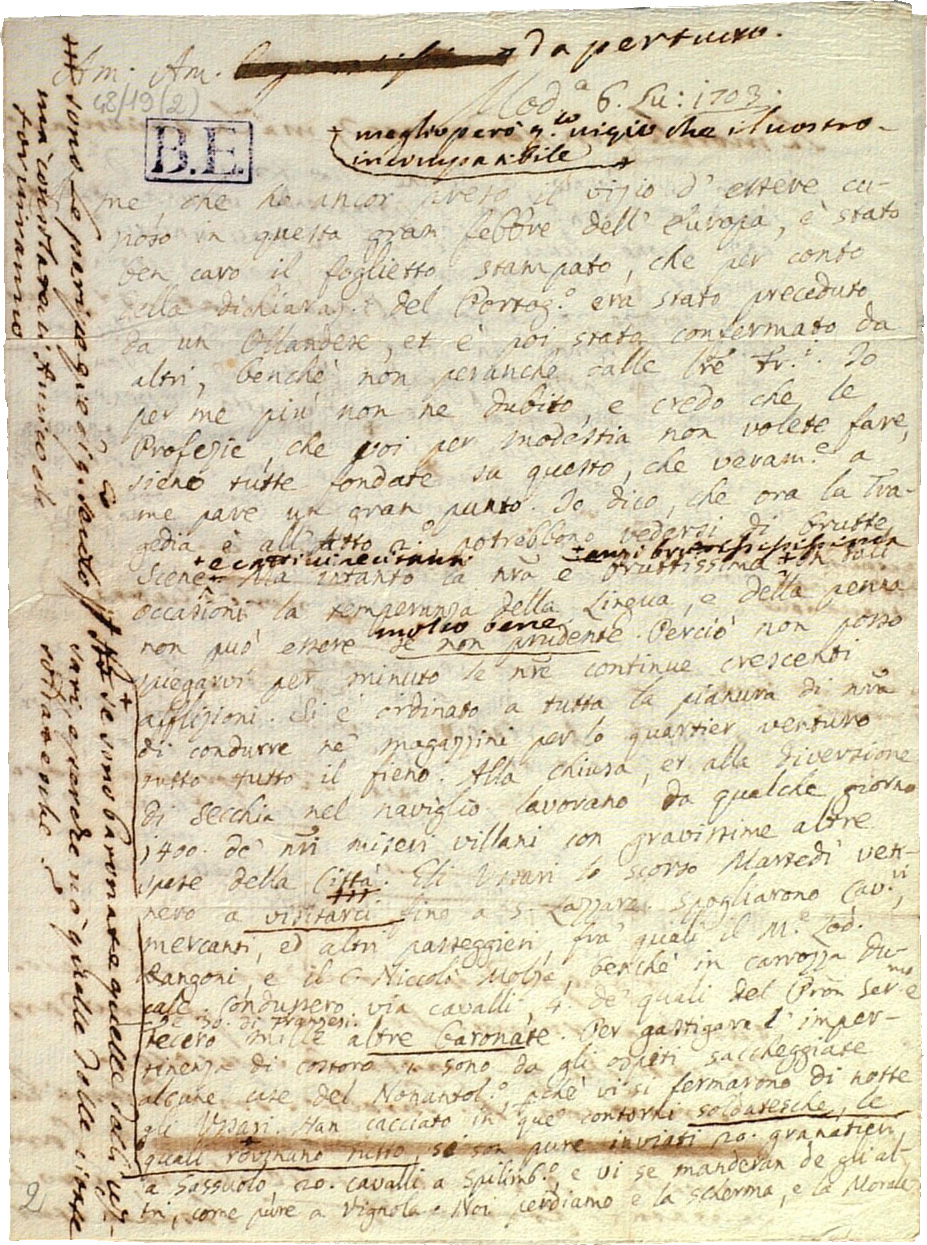 Am. Am. da per tutto.
48/19 (2)
Mod.ª 6. Lu: 1703.
B.E.
+ meglio però q.to vizio che il vostro
incomparabile +
A me, che ho ancor preso il vizio d' essere cu-
rioso in questa gran febbre dell' Europa, è stato
ben caro il foglietto stampato, che per conto
della dichiaraz.e del Portog.o era stato preceduto
da un Ollandese, et è poi stato confermato da
altri, benchè non peranche dalle lre Fr.i. Io
per me più non ne dubito, e credo che le
Profezie, che voi per modestia non volete fare,
sieno tutte fondate su questo, che veram.e a
me pare un gran punto. Io dico, che ora la Tra-
gedia è all' atto 2.o potrebbono vedersi di brutte
Scene. Ma intanto la nrâ è bruttissima. In tali
occasioni la temperanza della Lingua, e della penna
molto bene
non può essere se non prudente. Perciò non posso
spiegarvi per minuto le nrê continue crescenti
afflizioni. Si è ordinato a tutta la pianura di nrâ
di condurre ne' magazzini per lo quartier venturo
tutto tutto il fieno. Alla chiusa, et alla diversione
di Secchia nel naviglio lavorano da qualche giorno
1400. de' nrî miseri villani con gravissime altre
spese della Città. Gli Ussari lo scorso Martedì ven-
nero a visitarci fino a S. Lazzaro. Spogliarono Cav.ri,
mercanti, ed altri passeggieri, fra' quali il M.e Lod.
Rangoni, e il C. Niccolò Molza, benchè in carrozza Du-
cale. Condussero via cavalli, 4. de' quali del Prôn Ser.mo e
be 30. di Franzesi.
fecero mille altre baronate. Per gastigare l' imper-
tinenza di costoro si sono da gli ospiti saccheggiate
alcune case del Nonantol.o, pchè vi si fermarono di notte
gli Ussari. Han cacciato in que' contorni soldatesche, le
quali rovinano tutto, si son pure inviati 20. granatieri
a Sassuolo, 20. cavalli a Spilimb.o, e vi se manderan de gli al-
tri, come pure a Vignola. Noi perdiamo e la scherma, e la Morale
+++ sono le
ma consolatevi
++ Se sono baronate quelle degli us-
sari
2